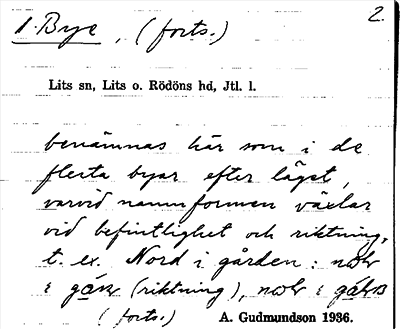 1. Bye, (forts.) 2.
Lits sn, Lits o. Rödöns hd, Jtl. l.
benämnas här som i de
flesta byar efter läget,
varvid namnformen växlar
vid befintlighet och riktning,
t. ex. Nord i gården: 
i (riktning), i
(forts.) A. Gudmundson 1936.